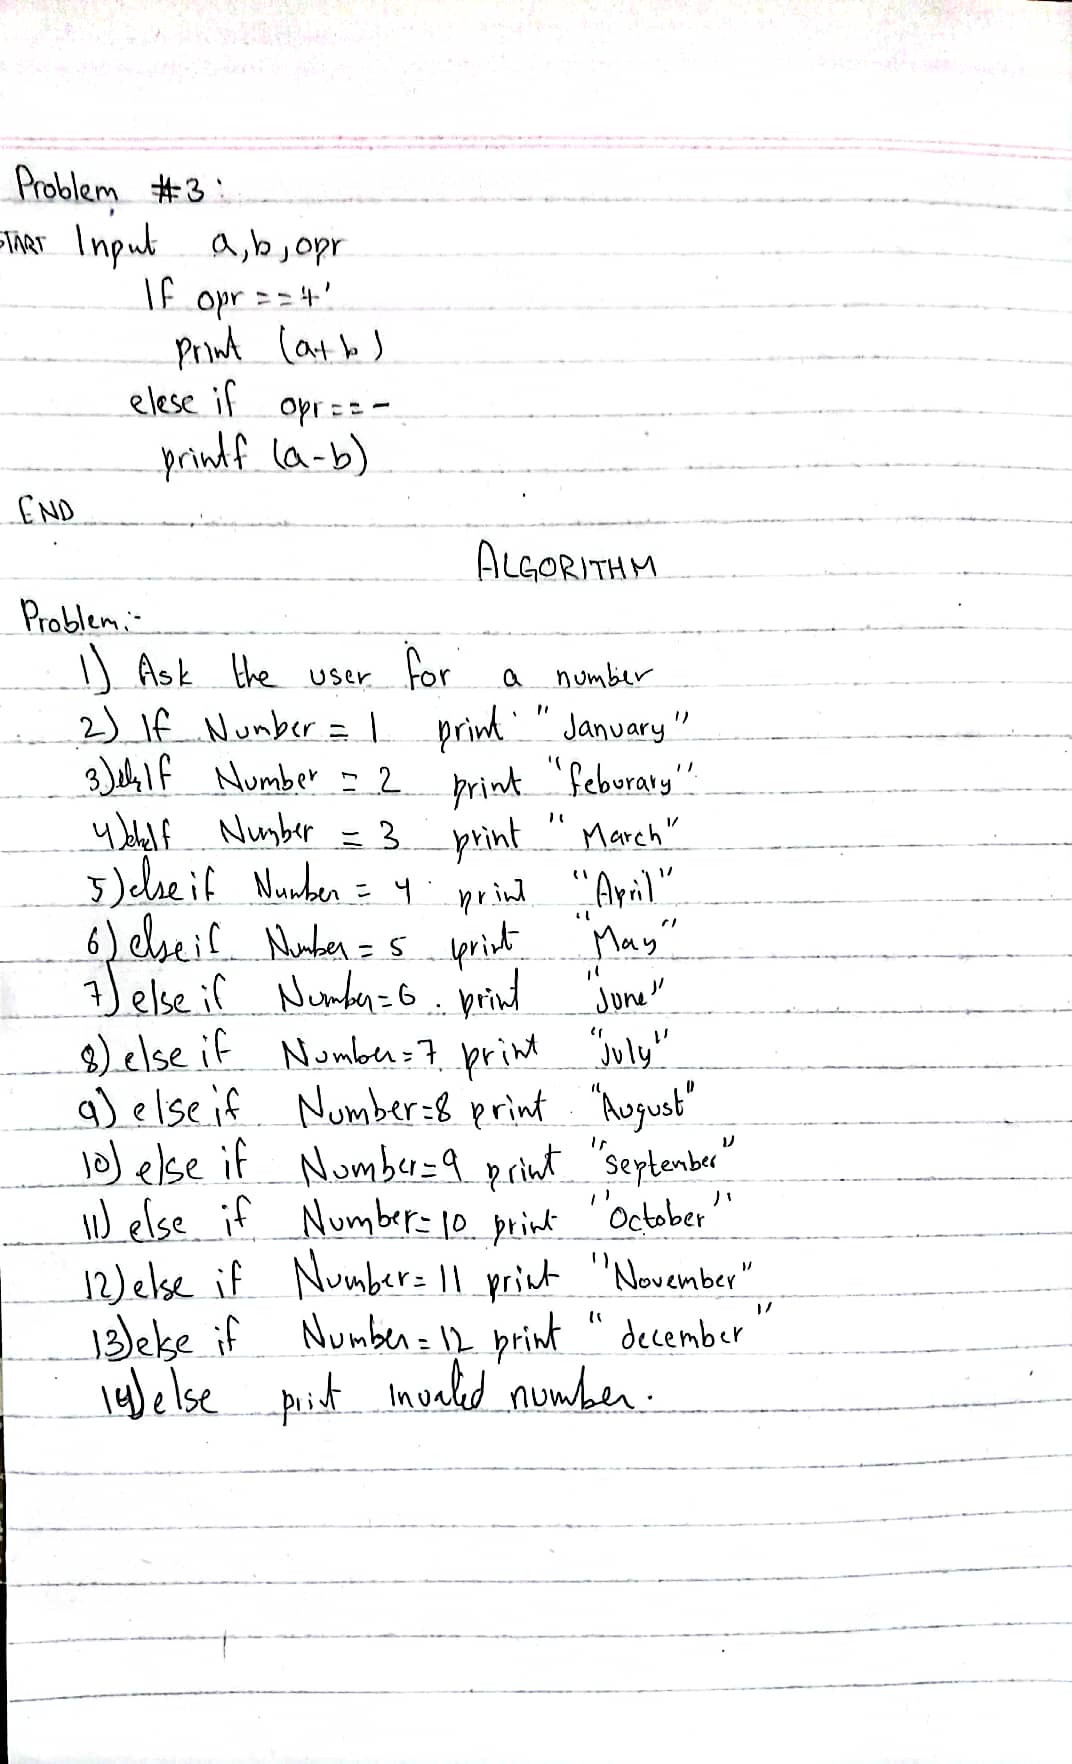 Problem #3:
START Input a,b,opr
If opr =='+'
print (a+b)
elese if opr==-
printf (a-b)
END
ALGORITHM
Problem:-
1) Ask the user for a number
2) If Number = 1 print "January"
3) If Number = 2 print "feburary"
4) If Number = 3 print "March"
5) else if Number = 4 print "April"
6) else if Number = 5 print "May"
7) else if Number=6 print "June"
8) else if Number=7 print "July"
9) else if Number=8 print "August"
10) else if Number=9 print "September"
11) else if Number=10 print "October"
12) else if Number=11 print "November"
13) else if Number=12 print "december"
14) else print Invalid number.